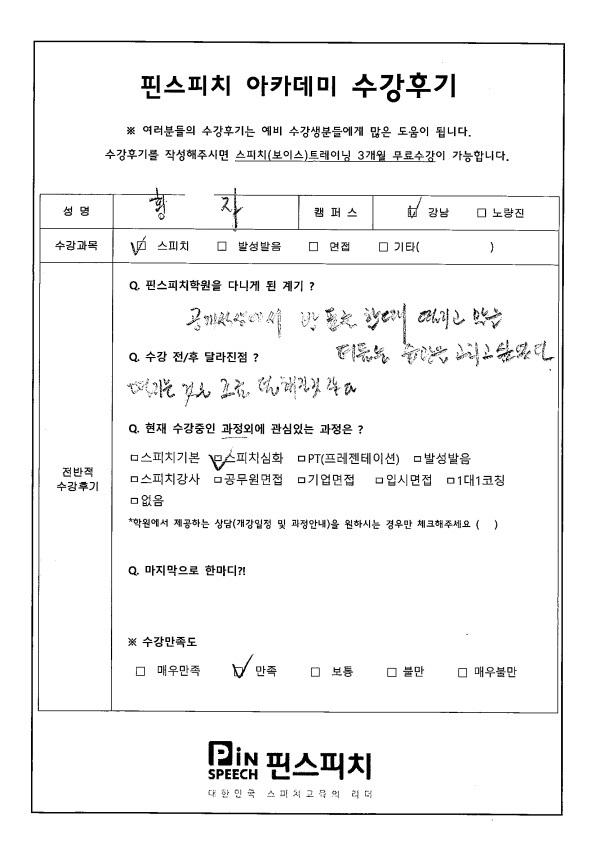 핀스피치 아카데미 수강후기
※ 여러분들의 수강후기는 예비 수강생분들에게 많은 도움이 됩니다.
수강후기를 작성해주시면 스피치(보이스)트레이닝 3개월 무료수강이 가능합니다.
성 명 황 자 캠 퍼 스 ☑ 강남 □ 노량진
수강과목 ☑ 스피치 □ 발성발음 □ 면접 □ 기타( )
Q. 핀스피치학원을 다니게 된 계기 ?
떨리고
Q. 수강 전/후 달라진점 ?
더듬는 습관을 고치고 싶었다
떨리는 것은 조금 덜 해진것 같다
Q. 현재 수강중인 과정외에 관심있는 과정은 ?
□스피치기본 ☑스피치심화 □PT(프레젠테이션) □발성발음
□스피치강사 □공무원면접 □기업면접 □입시면접 □1대1코칭
□없음
전반적
수강후기
*학원에서 제공하는 상담(개강일정 및 과정안내)을 원하시는 경우만 체크해주세요 ( )
Q. 마지막으로 한마디?!
※ 수강만족도
□ 매우만족 ☑ 만족 □ 보통 □ 불만 □ 매우불만
PiN
SPEECH 핀스피치
대한민국 스피치교육의 리더